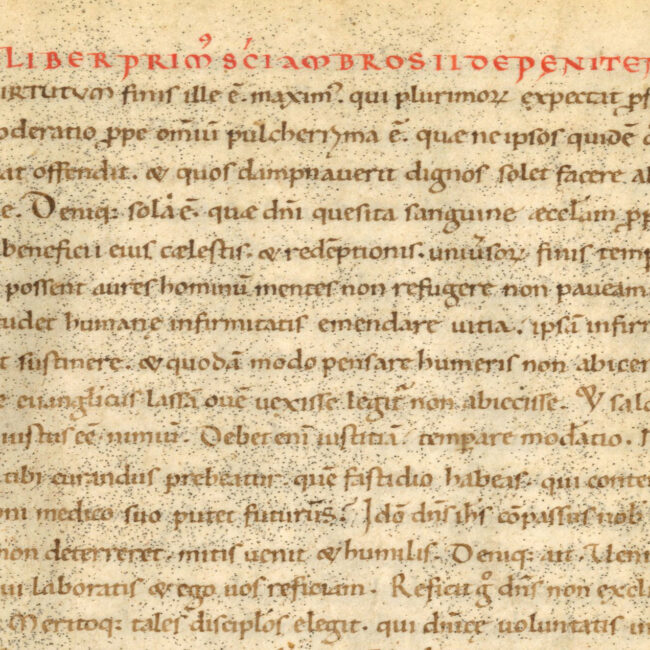 LIBER PRIMꝰ SC̄I AMBROSII DE PENITE
IRTUTUM finis ille ē. maximꝰ. qui plurimoꝝ expectat ꝓf
oderatio ꝓpe om̄iū pulcherrima ē. quę ne ipsos quidē
at offendit. & quos dampnauerit dignos solet facere
e. Deniq: sola ē. quę dn̄i quesita sanguine ęcclām ꝓp
beneficii eius cęlestis. & redēptionis. uniuˀsoꝝ finis temp
possent aures hominū mentes non refugere non paueam
tudet humanę infirmitatis emendare uitia. ipsā infir
t sustinere. & quodā modo pensare humeris non abicer
e euanglicus lassā ouē uexisse legit᷑ non abiecisse. sal
iustus eē nimiū. Debet eni iustitiā temꝑare modatio.
tibi curandus prebeatur quē fastidio habeas. qui conte
ni medico suo putet futurūs? Ido dn̄s ih̄s cōpassus nob
non deterreret. mitis uenit & humilis. Deniq: ait. Ueni
ui laboratis & ego uos reficiam. Reficit g̊ dn̄s non excl
Meritoq: tales disciplos elegit. qui dn̄icę uoluntatis in